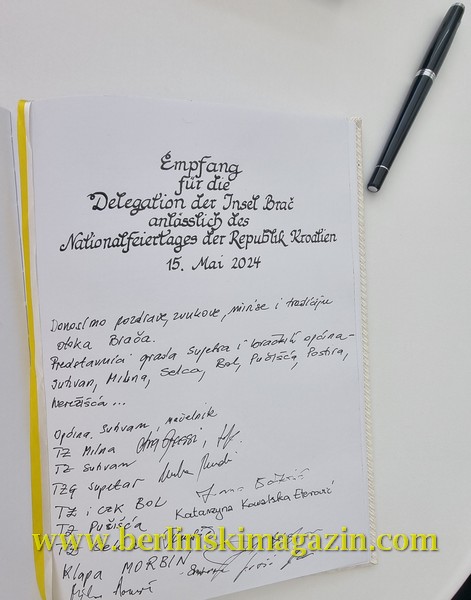 Empfang
für die
Delegation der Insel Brač
anlässlich des
Nationalfeiertages der Republik Kroatien
15. Mai 2024
Donosimo pozdrave, zvukove, mirise i tradiciju
otoka Brača.
Predstavnici grada Supetra i bračkih općina -
Sutivan, Milna, Selca, Bol, Pučišća, Postira,
Nerežišća ...
Općina Sutivan, načelnik
TZ Milna
TZ Sutivan
TZG Supetar
TZ i czk BOL
Katarzyna Kowalska Eterović
TZ Pučišća
TZ Selca
www.berlinskimagazin.com
Klapa MORBIN